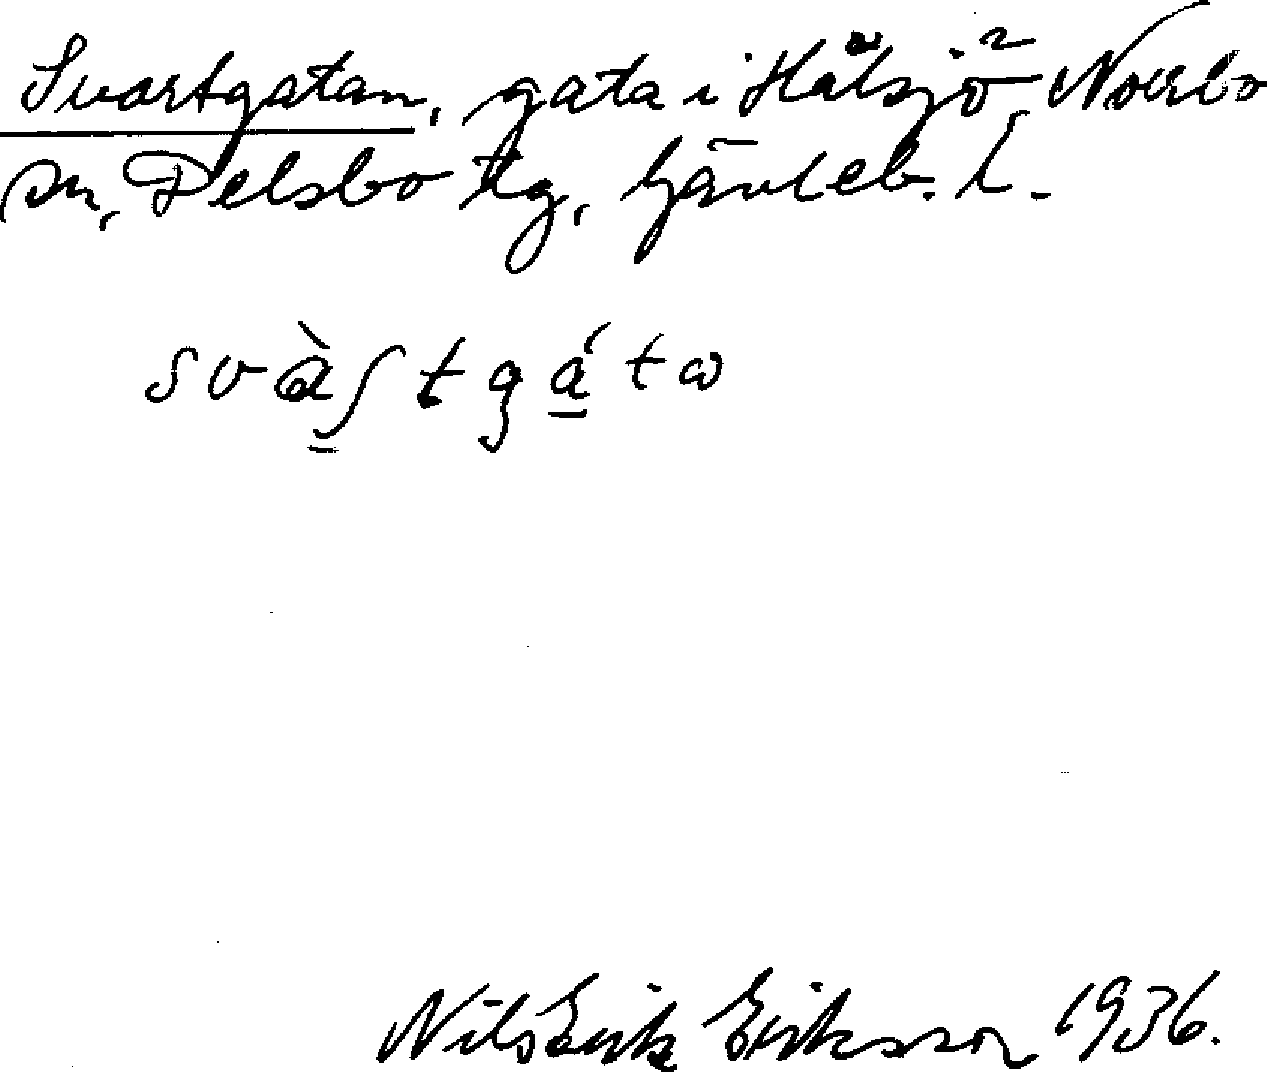 Svartgatan, gata i Hålsjö² Norrbo
sn, Delsbo tg, Gävleb. l.
svàʃtgátω
Nils Erik Eriksson 1936.